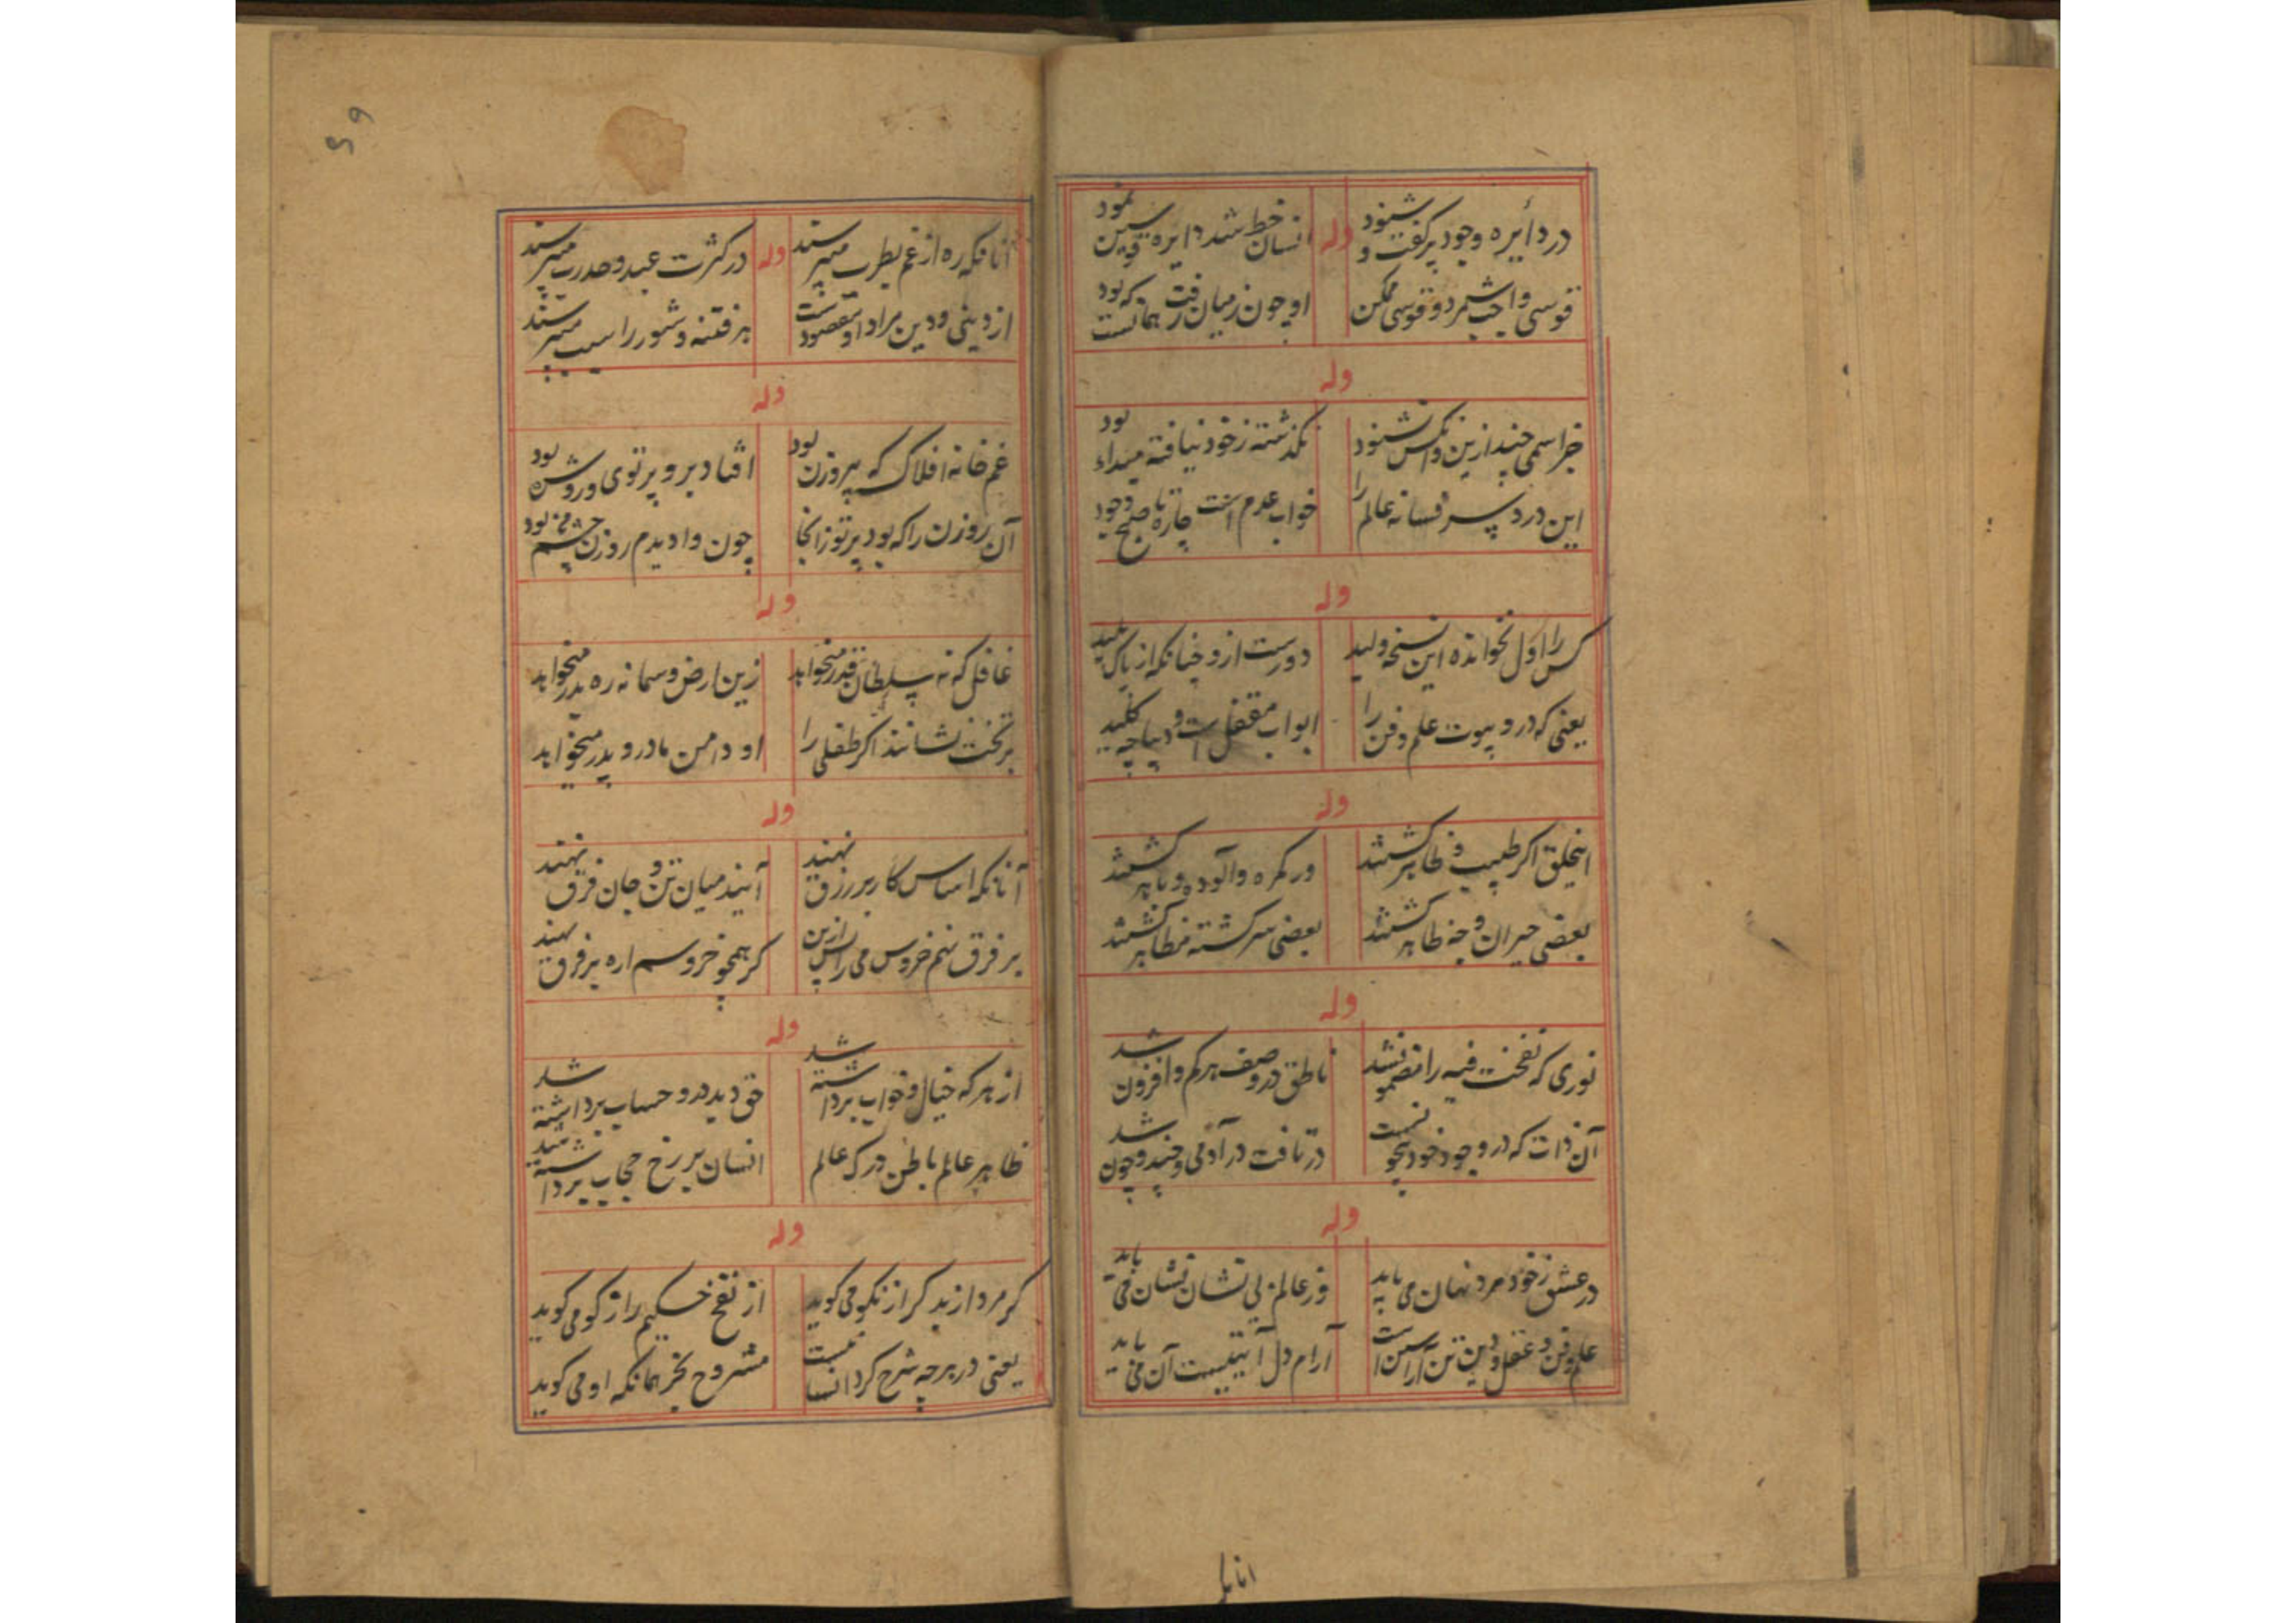 در دایره وجود پر گفت و شنود
وله
انسان خط شد دایره قوسین نمود
قوسی واجب شمرد و قوسی ممکن
او چون ز میان رفت همانست که بود
وله
جز اسمی چند ازین و آنکس نشنود
نگذشته ز خود نیافته مبداء بود
این درد سر فسانه عالم را
خواب عدم است چاره تا صبح وجود
وله
کس را اول نخوانده این نسخه ولید
دورست ازو چنانکه از پاک پلید
یعنی که درو بیوت علم و فن را
ابواب مقفل است و دیباچه کلید
وله
اینخلق اگر طیب و طاهر گشتند
ور گمره و آلوده و باهر گشتند
بعضی حیران وجه ظاهر گشتند
بعضی سرگشته مظاهر گشتند
وله
نوری که نفخت فیه را مضمون شد
ناطق در وصف هر کم و افزون شد
آن ذات که در وجود خود بیچونست
دریافت در آدمی و چند و چون شد
وله
در عشق ز خود مرد نهان می باید
وز عالم بی نشان نشان می باید
علم و فن و عقل و دین تن آراستن است
آرام دل آیتیست آن می باید
انانکه
۵۹
آنانکه ره از غم بطرب میپرسند
وله
در کثرت عبد وحدت رب میپرسند
از دینی و دین مراد او مقصودست
هر فتنه و شور را سبب میپرسند
وله
غمخانه افلاک که پر روزن بود
افتاد برو پرتوی و روشن بود
آن روزن را که بود پرتو زانجا
چون وا دیدم روزن چشم من بود
وله
غافل که نه سلطان قدر میخواهد
زین ارض و سما نه ره بدر میخواهد
بر تخت نشانند اگر طفلی را
او دامن مادر و پدر میخواهد
وله
آنانکه اساس کار بر رزق نهند
آیند میان تن و جان فرق نهند
بر فرق نهم خروس می را پس ازین
گر همچو خروسم اره بر فرق نهند
وله
از هر که خیال و خواب برداشته شد
حق دید درو حساب برداشته شد
ظاهر عالم باطن درک عالم
انسان بر رخ حجاب برداشته شد
وله
گر مرد از بد گر از نکو می گوید
از نفخ حکیم راز گو می گوید
یعنی در هر چه شرح کرد انسانیست
مشروح نگر همانکه او می گوید